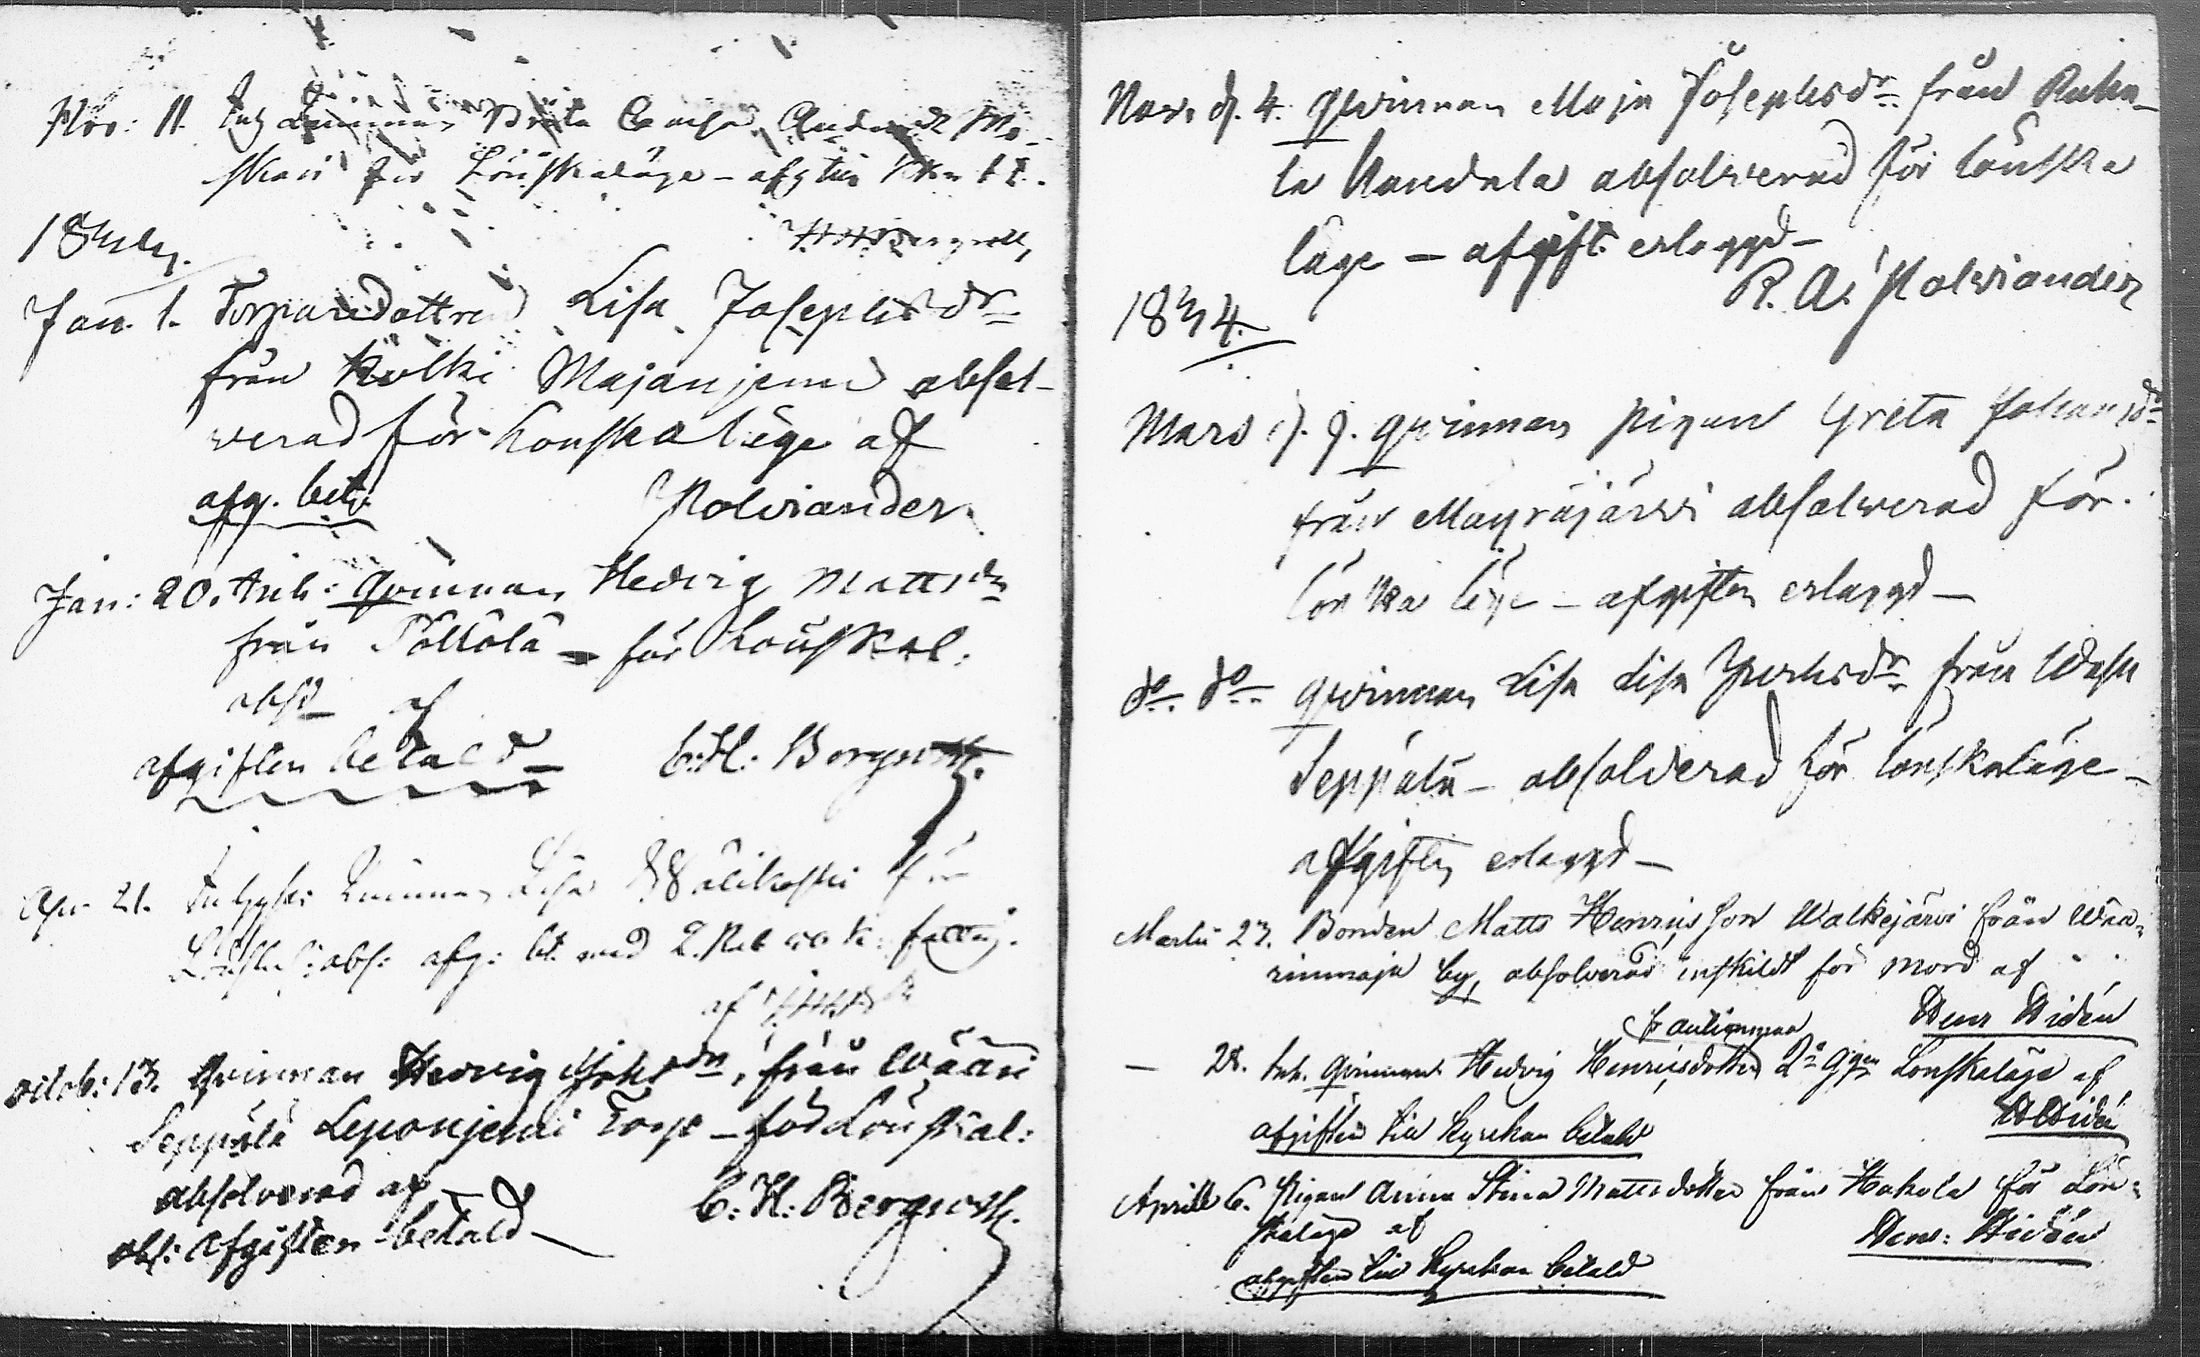 Nov: 11. Inh Qvinnan Brita Caisa Andersdr
skari för Lönskaläge - afgiften
Jan. 1. Torparedottren Lisa Josephsdr
från Kolki Majanjemi absol-
verad för Lönskaläge af
afg. bet. Polviander.
Jan: 20. Inh: Qvinnan Hedvig Mattsdr
från Pöllölä - för Lönskal:
absd af
afgiften betald C. H. Bergroth.
Apr. 21. Inhyses Qvinnan Lisa Wälikoski för
Lönskal: abs: afg: bt med 2. Rub k: fattig.
af
octob: 13. Qvinnan Hedvig Johsdr, från Wääri
Seppälä Leponjemi Torp - för Lönskal:
absolverad af
afgiften betald C: H: Bergroth.
Nov. d. 4. qwinnan Maja Josephsdr från Ruha-
la Kandala absolverad för lönska
läge - afgift erlaggd -
R. A. Polviander
1834.
Mars d. 9. qwinnan pigan Greta Johansdr
från Mayräjärvi absolverad för
lönska läge - afgiften erlaggd -
do do qwinnan Lisa Lisa från
Seppälä - absolverad för lönskaläge -
afgiften erlaggd -
Martii 23. Bonden Matts Henriksson Walkejärvi från Waa-
rinmaja by, absolverad enskildt för mord af
Henr Widén
- 28. Inh. Qvinnan Hedvig Henriksdotter 2a Ggn Lönskaläge af
afgiften till Kyrckan betald HWidén
Aprill 6. Pigan Anna Stina Mattsdotter från Hakola för Lön-
skaläge af Henr: Widén
afgiften till Kyrckan betald